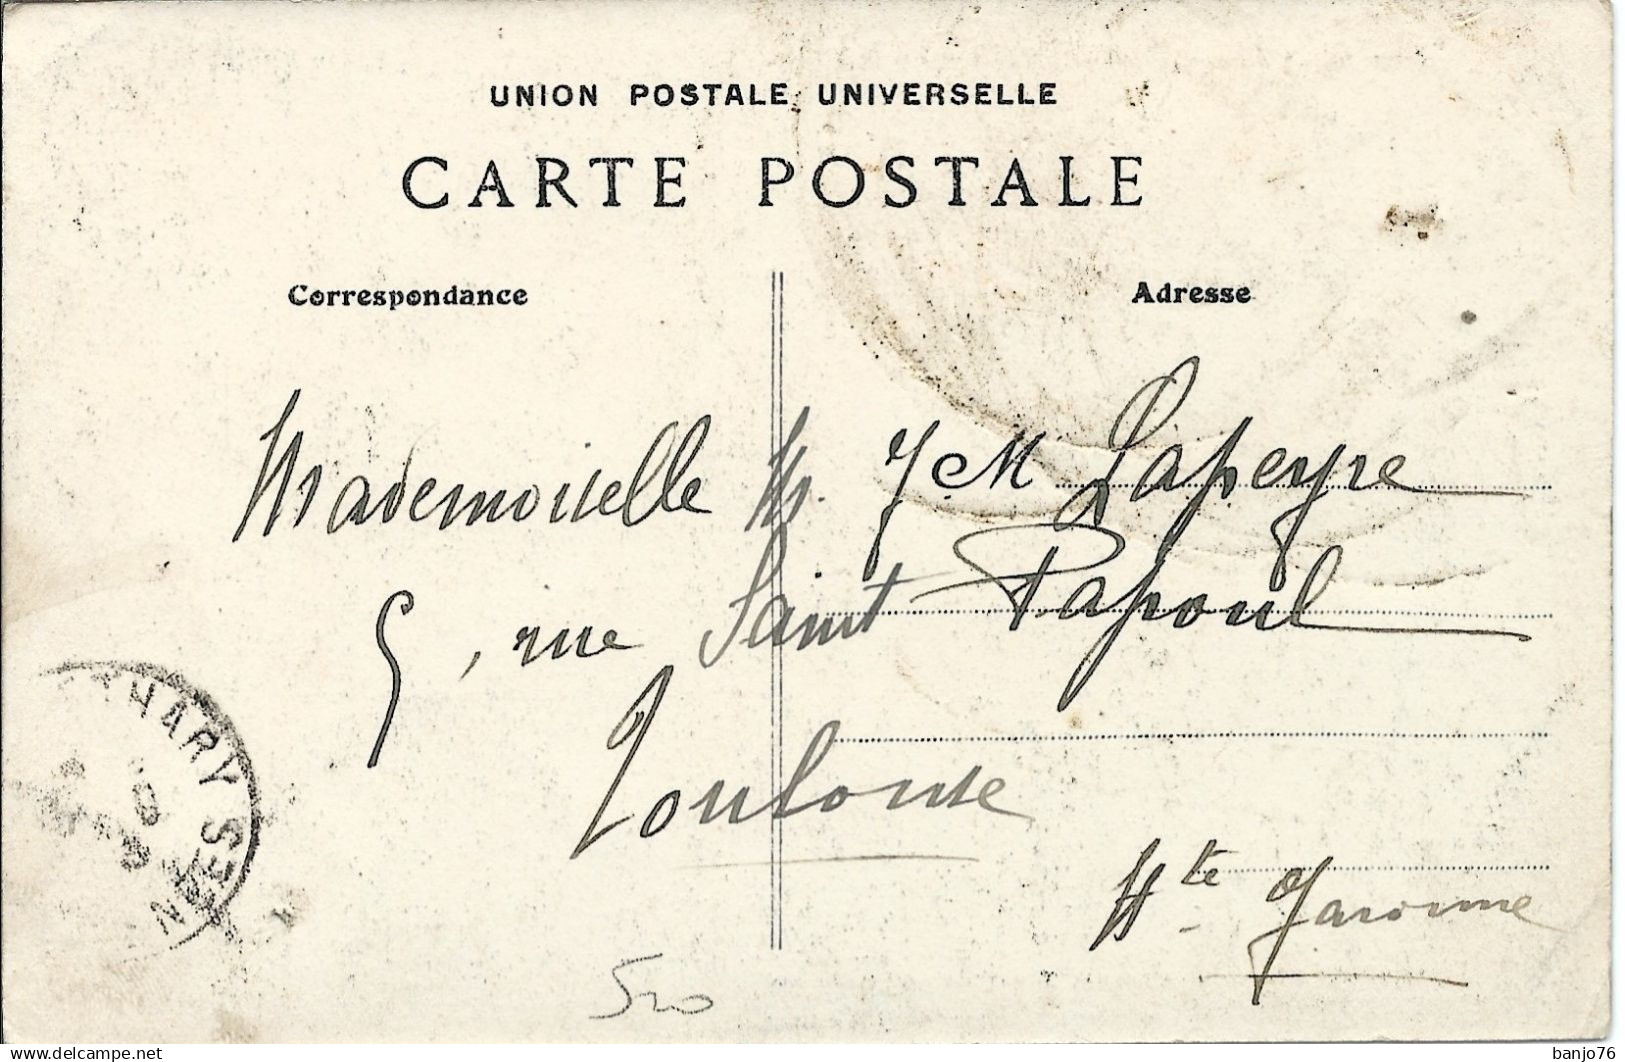 UNION POSTALE UNIVERSELLE
CARTE POSTALE
Correspondance
Adresse
Mademoiselle M. J M Lapeyre
5, rue Saint Papoul
Toulouse
Hte Garonne
HARY
NEES
520
delcampe.net
banjo76